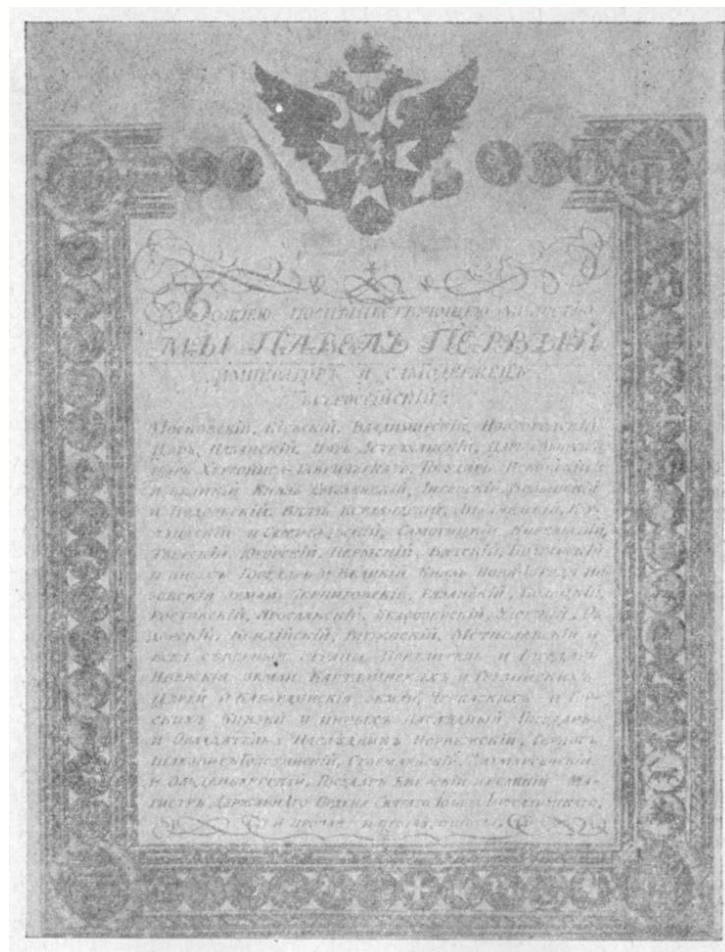 Божиею поспешествующею милостию
МЫ ПАВЕЛЪ ПЕРВЫЙ
ИМПЕРАТОРЪ И САМОДЕРЖЕЦЪ
ВСЕРОССІЙСКІЙ:
Московскій, Кіевскій, Владимирскій, Новгородскій,
Царь Казанскій, Царь Астраханскій, Царь Сибирскій,
Царь Херсониса-Таврическаго, Государь Псковскій
и великій Князь Смоленскій, Литовскій, Волынскій
и Подольскій, Князь Естляндскій, Лифляндскій, Кур-
ляндскій и Семигальскій, Самогицкій, Корельскій,
Тверскій, Югорскій, Пермскій, Вятскій, Болгарскій
и иныхъ Государь и Великій Князь Нова-города Ни-
зовскія земли, Черниговскій, Рязанскій, Полоцкій,
Ростовскій, Ярославскій, Белоозерскій, Удорскій, Об-
дорскій, Кондійскій, Витебскій, Мстиславскій и
всея северныя страны Повелитель и Государь
Иверскія земли, Карталинскихъ и Грузинскихъ
Царей и Кабардинскія земли, Черкаскихъ и Гор-
скихъ Князей и иныхъ наследный Государь
и Обладатель, Наследникъ Норвежскій, Герцогъ
Шлезвигъ-Голстинскій, Стормарнскій, Дитмарсенскій
и Ольденбургскій, Государь Еверскій и великій Ма-
гистръ Державнаго Ордена Святаго Іоанна Іерусалимскаго,
и прочая, и прочая, и прочая.